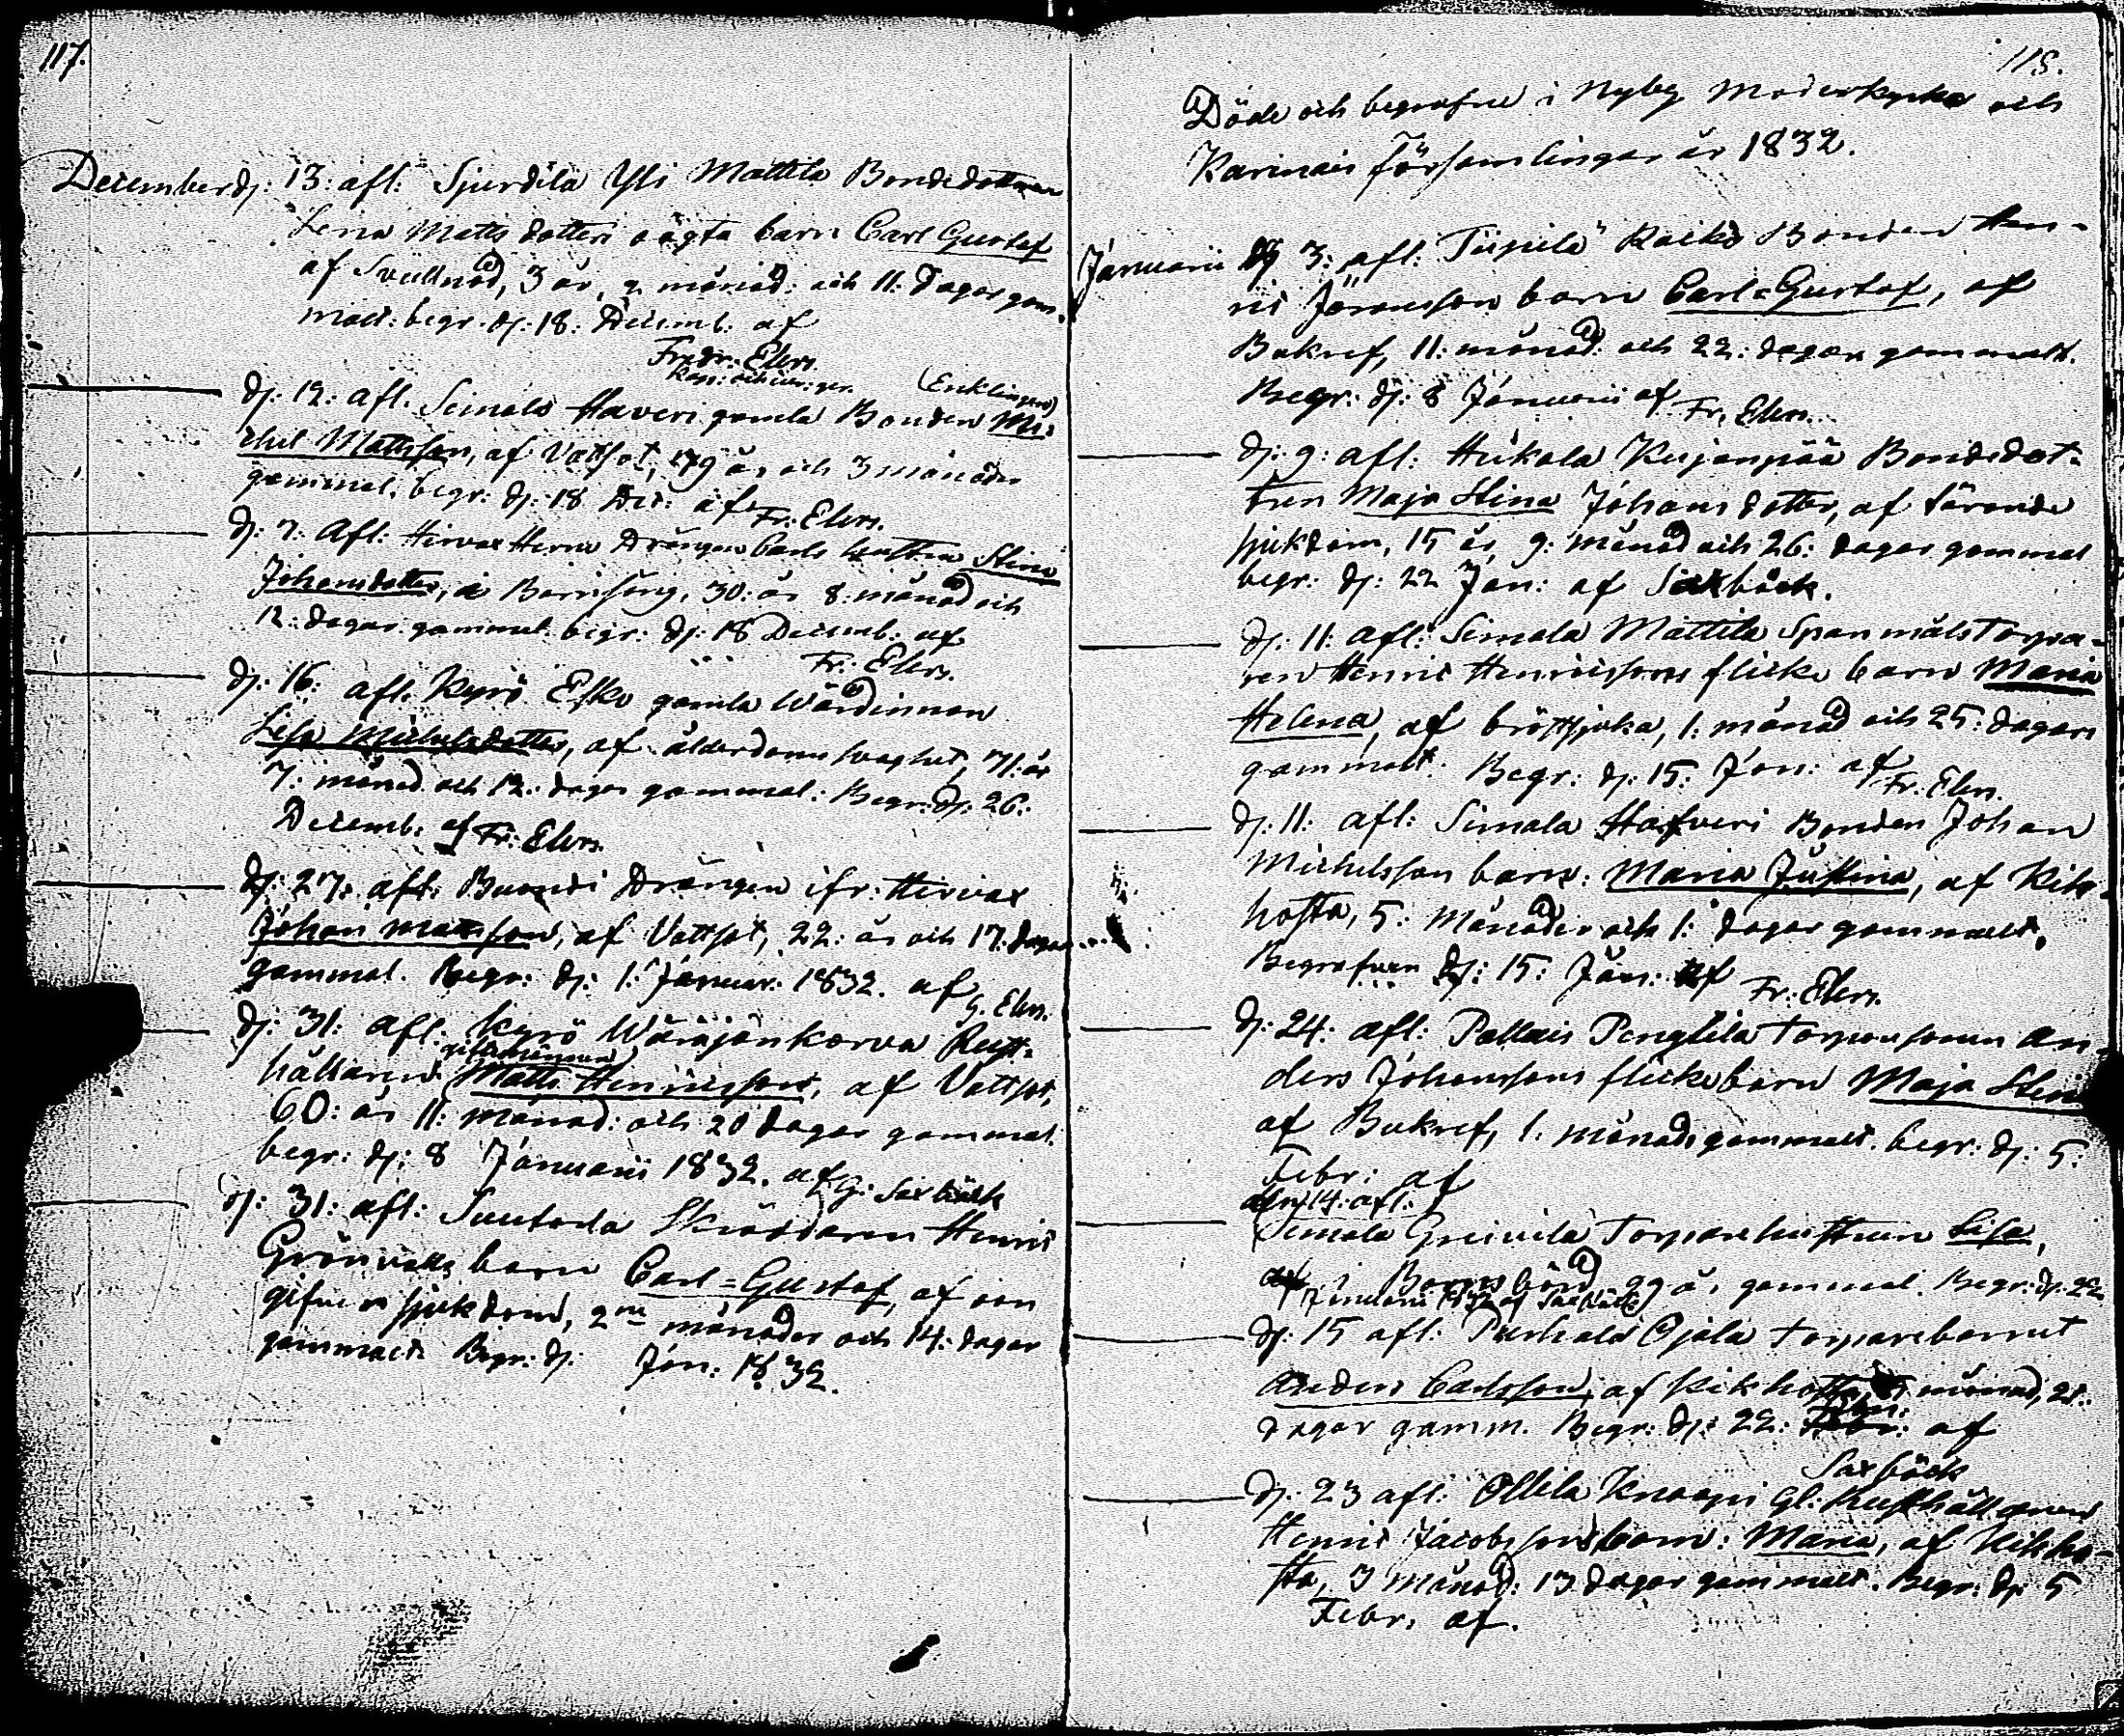 117.
December dj: 13: afl: Sjurdila Yli Mattila Bondedottren
Lena Matts dotters oägta barn Carl Gustaf
af Svullnad, 3 år, 9 månad: och 11: dagar gam-
malt: begr. dj: 18: Decemb. af
Fredr. Elers.
Kap:
(Enklingen)
dj: 12: afl. Seimola Haveri gamla Bonden Mi-
chel Mattsson, af Vattsot, 79 år och 3 månader
gammal. begr: dj: 18 Dec: af Fr: Elers.
dj: 7: Afl: Hirvas Drängen Carls hustru Stina
Johansdotter, i Barnsäng, 30: år 8: månad och
12: dagar gammal begr: dj: 18 Decemb. af
Fr: Elers.
dj: 16: afl. Kyrö Esko gamla Wärdinnan
Lisa Michelsdotter, af ålderdoms svaghet, 71: år
7: månad och 12: dagar gammal: Begr: dj: 26:
Decemb. af Fr: Elers.
dj: 27: afl: Drängen ifr: Hirvas
Johan Mattsson, af Vattsot, 22: år och 17: dagar
gammal. Begr: dj: 1: Januar: 1832. af G. Elers.
dj: 31: afl: Kyrö Wäräjänkorva Rust-
hållaren Matts Henricsson, af Vattsot,
60: år 11: månad: och 20 dagar gammal.
begr: dj: 8 Januarii 1832. af G: Saxbäck
dj: 31: afl: Suutarla Skräddaren Henric
Grönvalls barn Carl=Gustaf, af oan
gifven sjukdom, 2ne månader och 14: dagar
gammalt Begr: dj: Jan: 1832.
118.
Döde och begrafne i Nyby Moderkyrko och
Karinais församlingar år 1832.
Januarii dj 3: afl: Raiko Bonden Hen-
ric Jöransson barn Carl=Gustaf, af
Bukref, 11: månad: och 22: dagar gammalt.
Begr: dj: 8 Januarii af Fr, Elers.
dj: 9: afl: Heikola Kujanpää Bondedot-
tren Maja Stina Johansdotter, af tärande
sjukdom, 15 år, 9: månad och 26: dagar gammal
begr: dj: 22 Jan: af Saxbäck.
dj: 11: afl: Simala Mattila Spanmålstorpa-
ren Henric Henricssons flicke barn Maria
Helena, af bröstsjuka, 1: månad och 25: dagars
gammalt. Begr: dj: 15: Jan: af Fr. Elers.
dj: 11: afl: Simala Hafveri Bonden Johan
Michelsson barn: Maria Justina, af Kik-
hosta, 5: Månader och 1: dagar gammalt,
Begrafven dj: 15: Jan: af Fr: Elers.
dj: 24: afl: Pallais Pengtila Torparsonen An-
ders Johanssons flickebarn Maja Stina
af Bukref, 1: månads gammalt. begr: dj: 5:
Febr: af
den 14: afl:
Simala Greivila Torparehustrun Lisa,
i Barnsbörd 29 år gammal. Begr: dj: 22
Januarii 1832 af Saxbäck
dj: 15 afl: Ojala Torparebarnet
Anders Carlsson, af kikhosta, månad, 21:
dagar gamm. Begr: dj: 22: Jan: af
Saxbäck
dj: 23 afl: Ollila Knaapi Gl: Rusthållaren
Henric Jacobssons barn: Maria, af Kikho-
sta, 3 månad: 13 dagar gammalt. Begr: dj: 5
Febr: af.